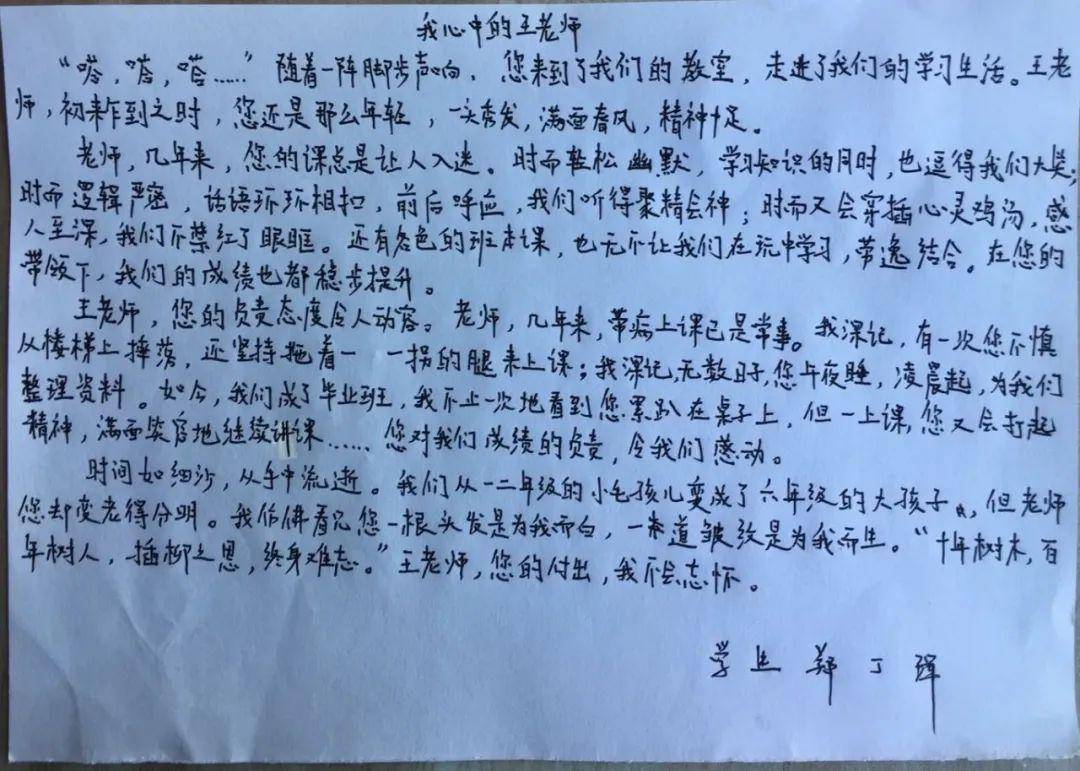 我心中的王老师
“嗒,嗒,嗒……”随着一阵脚步声响,您来到了我们的教室,走进了我们的学习生活。王老
师,初来乍到之时,您还是那么年轻,一头秀发,满面春风,精神十足。
老师,几年来,您的课总是让人入迷。时而轻松幽默,学习知识的同时,也逗得我们大笑;
时而逻辑严密,话语环环相扣,前后呼应,我们听得聚精会神;时而又会穿插心灵鸡汤,感
人至深,我们不禁红了眼眶。还有各色的班本课,也无不让我们在玩中学习,劳逸结合。在您的
带领下,我们的成绩也都稳步提升。
王老师,您的负责态度令人动容。老师,几年来,带病上课已是常事。我深记,有一次您不慎
从楼梯上摔落,还坚持拖着一 一拐的腿来上课;我深记,无数日子,您午夜睡,凌晨起,为我们
整理资料。如今,我们成了毕业班,我不止一次地看到您累趴在桌子上,但一上课,您又会打起
精神,满面笑容地继续讲课……您对我们成绩的负责,令我们感动。
时间如细沙,从手中流逝。我们从一二年级的小毛孩儿变成了六年级的大孩子,但老师
您却变老得分明。我仿佛看见您一根头发是为我而白,一道皱纹是为我而生。“十年树木,百
年树人,插柳之恩,终身难忘。”王老师,您的付出,我不会忘怀。
学生 郑丁